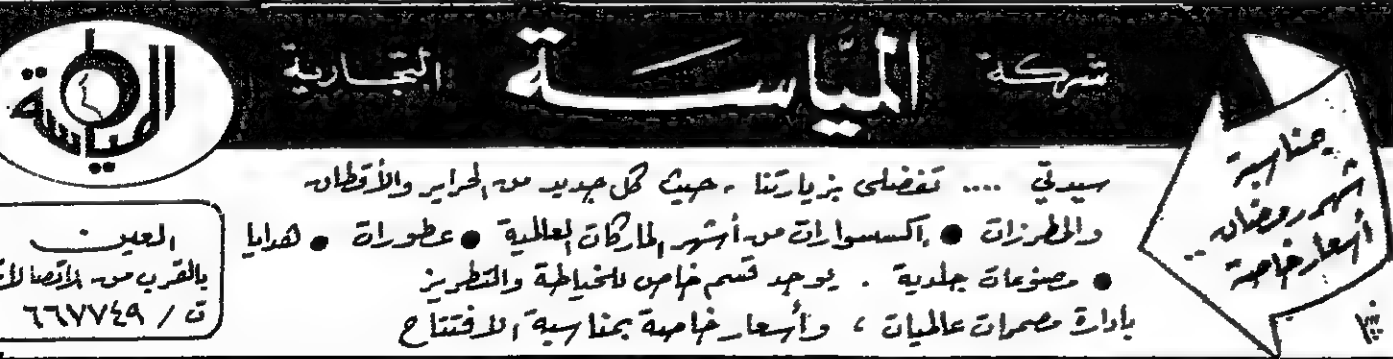 شركة المياسة التجارية
المياسة
بمناسبة
شهر رمضان ..
أسعار خاصة
سيدتي .... تفضلي بزيارتنا ، حيث كل جديد من الحراير والأقطان
والمطرزات ● إكسسوارات من أشهر الماركات العالمية ● عطورات ● هدايا
● مصنوعات جلدية . يوجد قسم خاص للخياطة والتطريز
بإدارة مصممات عالميات ، وأسعار خاصة بمناسبة الافتتاح
العين
بالقرب من الاتصالات
ت / ٦٦٧٧٤٩